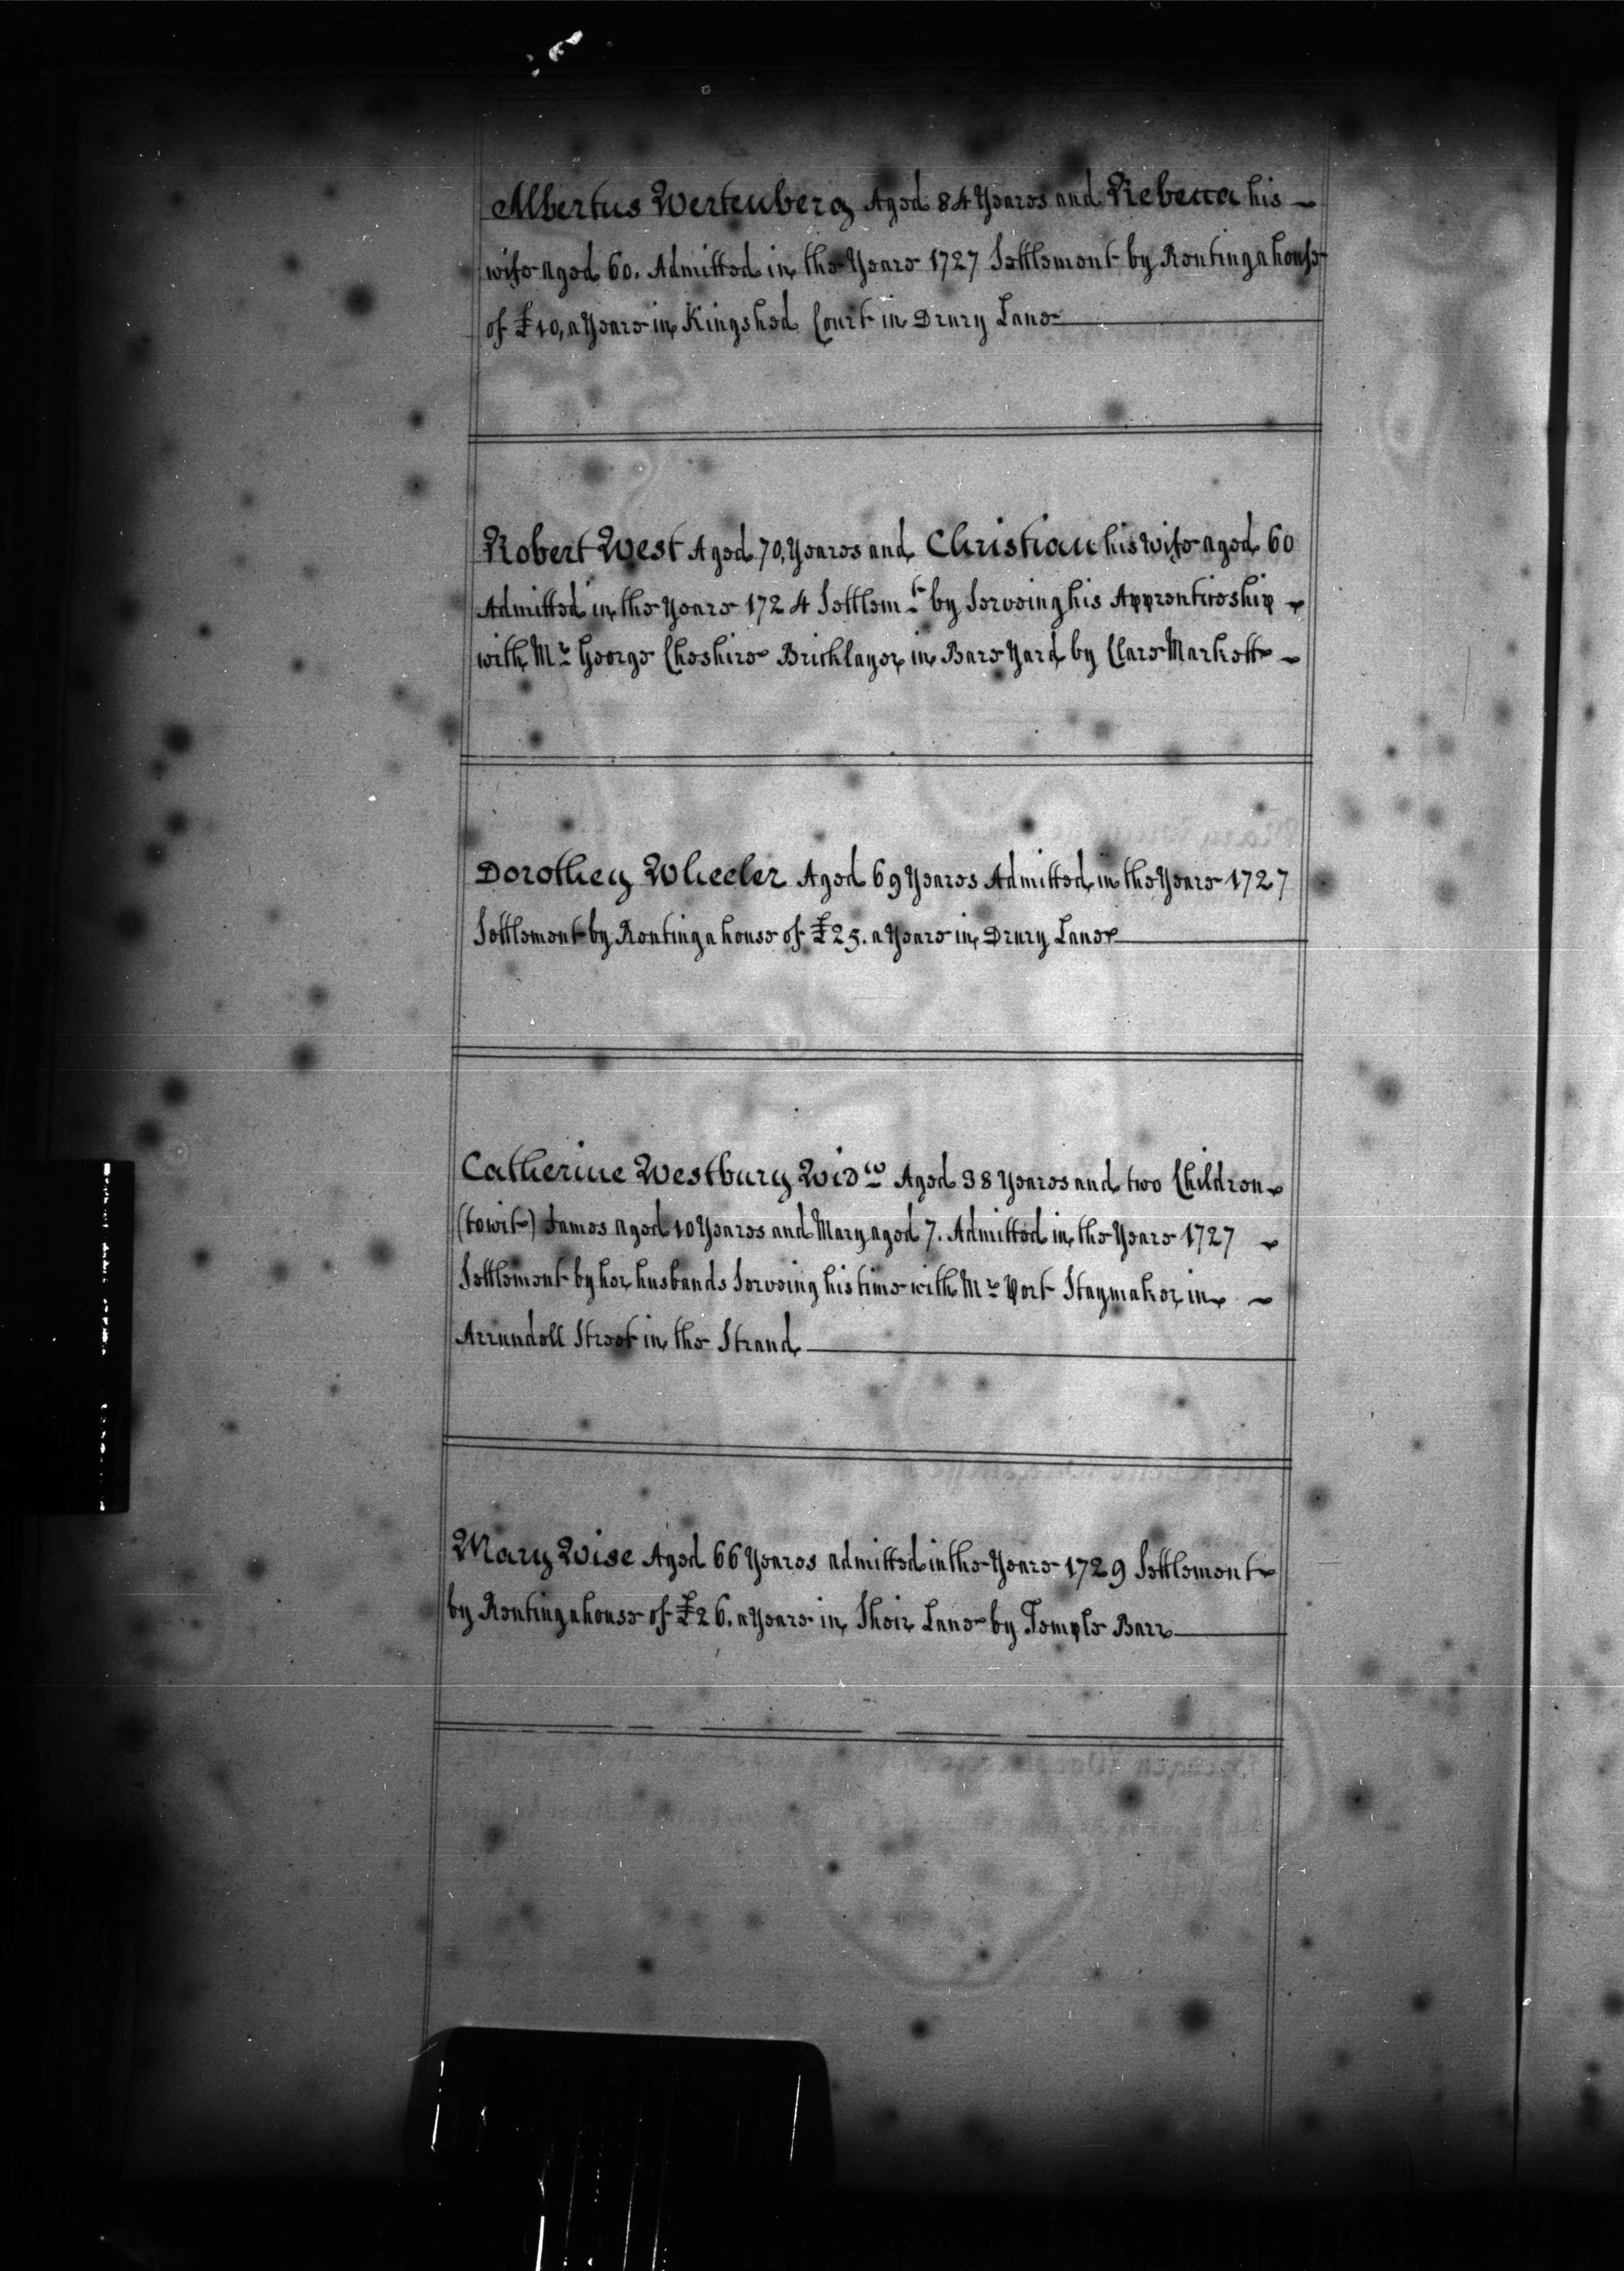 Albertus Wertenberg Aged 84 Yeares and Rebecca his
wife aged 60. Admitted in the Yeare 1727 Settlement by Renting a house
of £10, a Yeare in Kingshed Court in Drury Lane
Robert West Aged 70, Yeares and Christian his wife aged 60
Admitted in the Yeare 1724 Settlemt by Serveing his Apprenticeship
with Mr George Cheshire Bricklayer in Bare Yard by Clare Markett
Dorothey Wheeler Aged 69 Yeares Admitted in the Yeare 1727
Settlement by Renting a house of £25. a Yeare in Drury Lane
Catherine Westbury Widw Aged 38 Yeares and two Children
(towit) James aged 10 Yeares and Mary aged 7. Admitted in the Yeare 1727
Settlement by her husbands Serveing his time with Mr Port Staymaker in
Arrundell Street in the Strand
Mary Wise Aged 66 Yeares admitted in the Yeare 1729 Settlement
by Renting a house of £26. a Yeare in Sheir Lane by Temple Barr